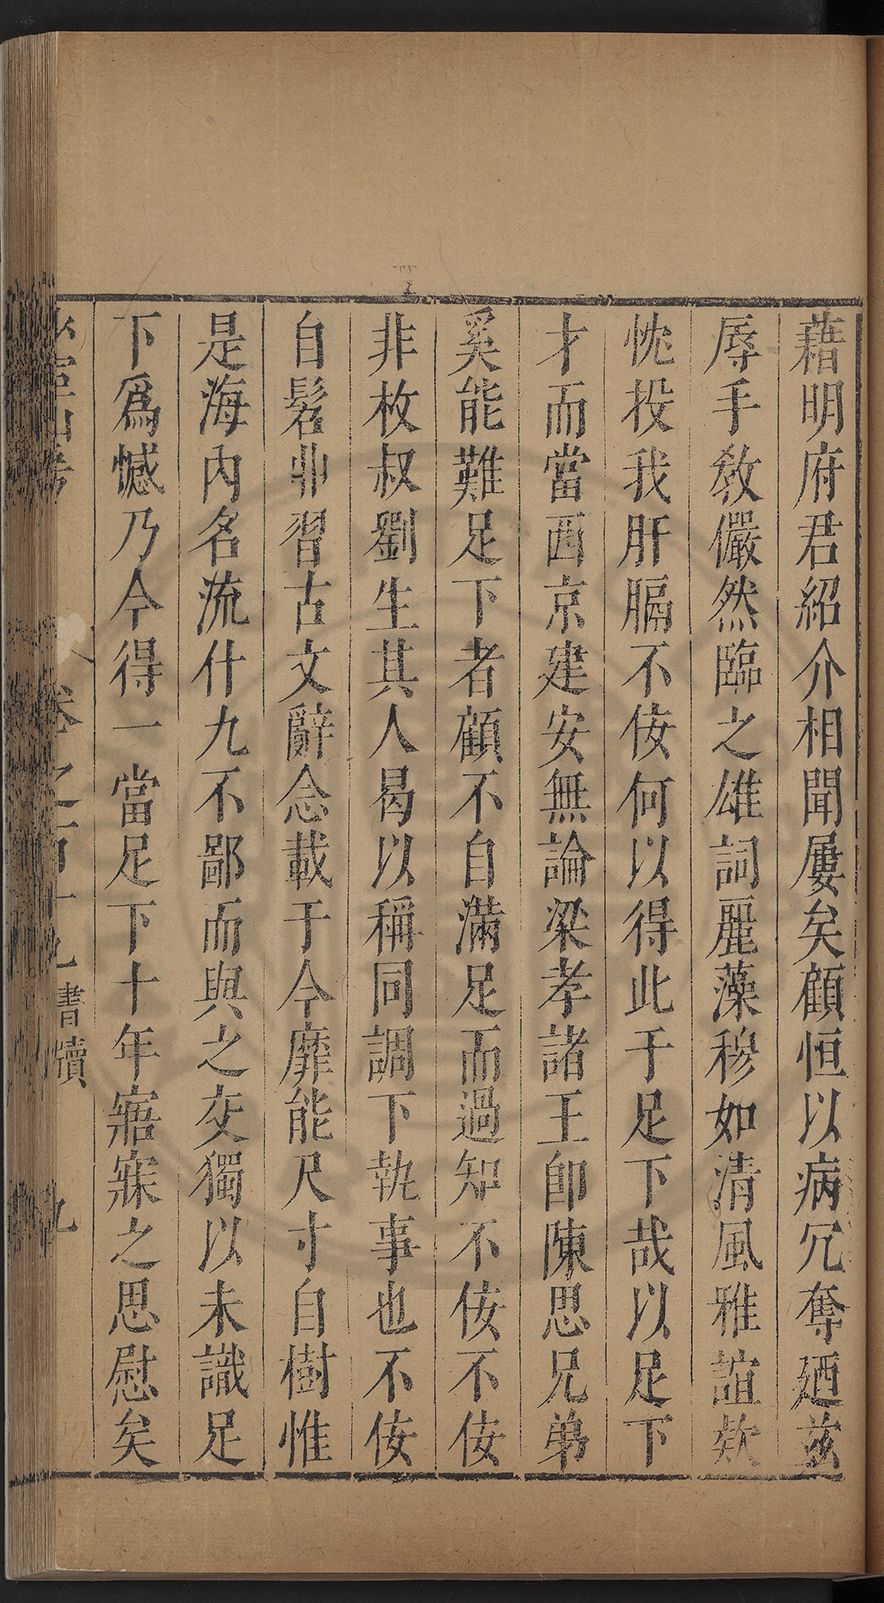 藉明府君紹介相聞屢矣顧恒以病冗奪廼茲
辱手教儼然臨之雄詞麗藻穆如清風雅誼欵
忱投我肝膈不佞何以得此于足下哉以足下
才而當西京建安無論梁孝諸王卽陳思兄弟
奚能難足下者顧不自滿足而過知不佞不佞
非枚叔劉生其人曷以稱同調下執事也不佞
自髫丱習古文辭念載于今靡能尺寸自樹惟
是海內名流什九不鄙而與之交獨以未識足
下爲憾乃今得一當足下十年寤寐之思慰矣
卷之百十九書牘 九